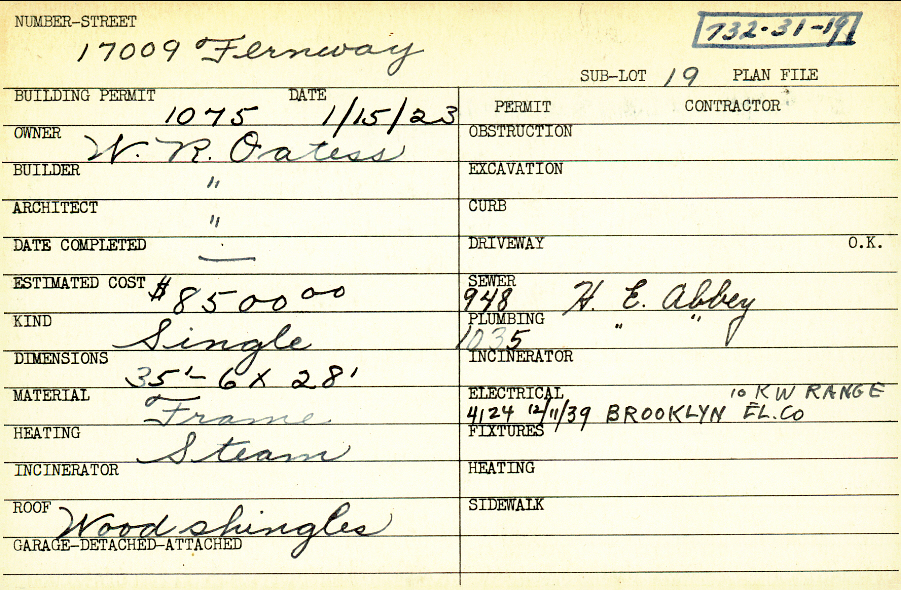 NUMBER-STREET
17009 Fernway
732-31-19
SUB-LOT 19 PLAN FILE
BUILDING PERMIT 1075 DATE 1/15/23
PERMIT CONTRACTOR
OWNER W. R. Oatess
OBSTRUCTION
BUILDER "
EXCAVATION
ARCHITECT "
CURB
DATE COMPLETED —
DRIVEWAY O.K.
ESTIMATED COST $8500 00
SEWER 948 H. E. Abbey
KIND Single
PLUMBING 1035 " "
DIMENSIONS 35'-6 x 28'
INCINERATOR
MATERIAL Frame
ELECTRICAL 10 KW RANGE
4124 12/11/39 BROOKLYN EL. CO
HEATING Steam
FIXTURES
INCINERATOR
HEATING
ROOF Wood shingles
SIDEWALK
GARAGE-DETACHED-ATTACHED